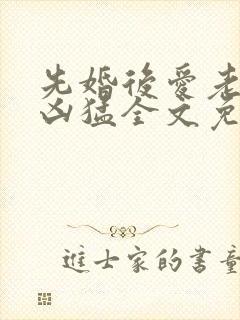 先婚後愛老
凶猛全文免
進士家的書童